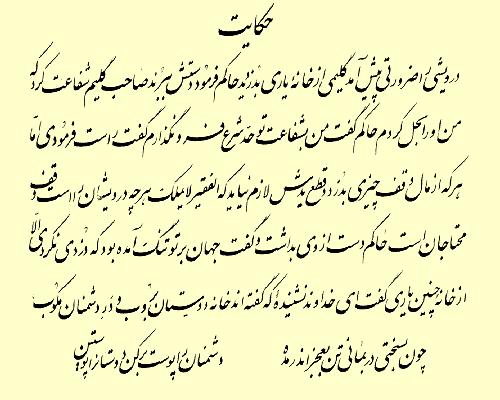 حکایت
درویشی را ضرورتی پیش آمد گلیمی از خانه یاری بدزدید حاکم فرمود دستش ببرند صاحب گلیم شفاعت کرد که
من او را بحل کردم حاکم گفت من بشفاعت تو حد شرع فرو نگذارم گفت راست فرمودی امّا
هر که از مال وقف چیزی بدزدد قطع یدش لازم نیاید که الفقیر لا یملک هر چه درویشان راست وقف
محتاجان است حاکم دست از وی بداشت و گفت جهان بر تو تنگ آمده بود که دزدی نکردی الّا
از خانه چنین یاری گفت ای خداوند نشنیدهٔ که گفته‌اند خانه دوستان بروب و در دشمنان مکوب
چون بسختی در بمانی تن بعجز اندر مده دشمنان را پوست بر کن دوستانرا پوستین